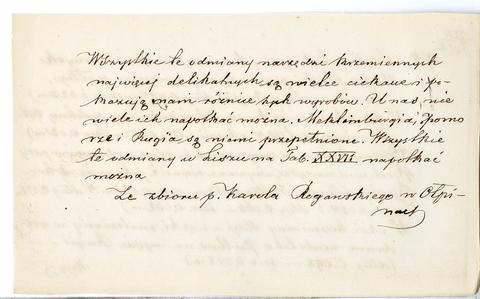 Wszystkie te odmiany narzędzi krzemiennych
najwięcej delikatnych są wielce ciekawe i po-
kazują nam różnice tych wyrobów. U nas nie
wiele ich napotkać można. Meklemburgia, Pomo
rze i Rugia są niemi przepełnione. Wszystkie
te odmiany w Liszu na Tab. XXVII napotkać
można
Ze zbioru p. Karola Rogawskiego w Ołpi-
nach